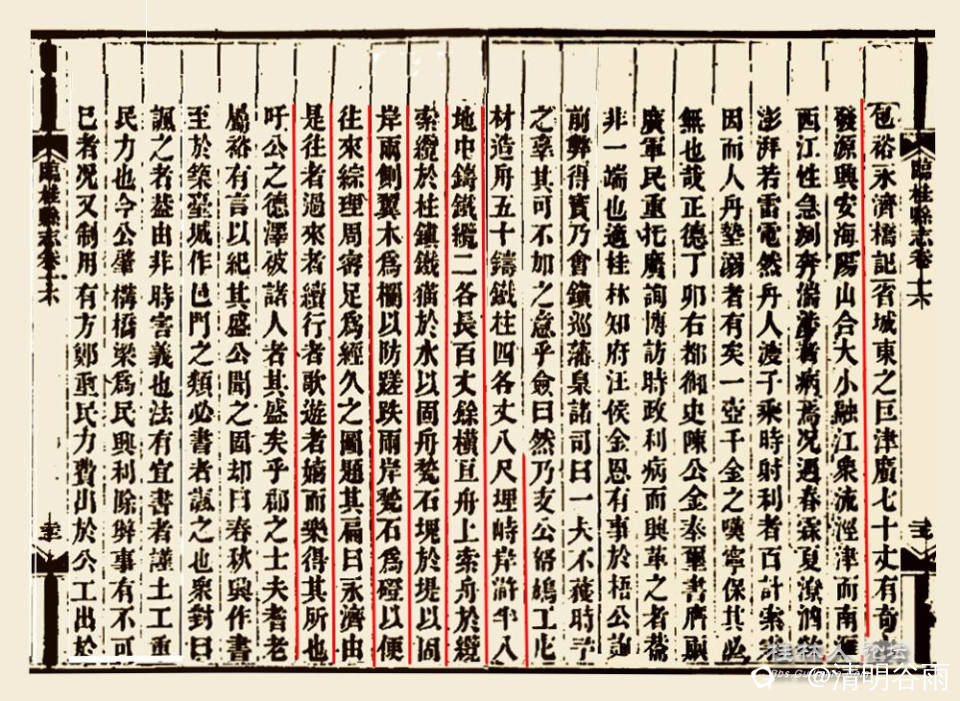 臨桂縣志卷十六
包裕永濟橋記省城東之巨津廣七十丈有奇
發源興安海陽山合大小融江衆流涇津而南滙
西江性急洌奔湍涉者病焉況遇春霖夏潦洶
澎湃若雷電然舟人渡子乘時射利者百計索
因而人丹墊溺者有矣一壺千金之嘆寧保其必
無也哉正德丁卯右都御史陳公金奉璽書膺兩
廣軍民重托廣詢博訪時政利病而興革之者蓋
非一端也適桂林知府汪侯金恩有事於梧公詢
前弊得實乃會鎮巡藩臬諸司曰一夫不獲時予
之辜其可不加之意乎僉曰然乃支公帑鳩工庀
材造舟五十鑄鐵柱四各丈八尺埋峙岸滸半入
地中鑄鐵纜二各長百丈餘橫亘舟上索舟於纜
索纜於柱鎮鐵猫於水以固舟甃石塊於堤以固
岸兩側翼木爲欄以防蹉跌兩岸甃石爲磴以便
往來綜理周密足爲經久之圖題其扁曰永濟由
是往者過來者續行者歌遊者嬉而樂得其所也
吁公之德澤被諸人者其盛矣乎郡之士夫耆老
屬裕有言以紀其盛公聞之固却曰春秋興作書
至於築臺城作邑門之類必書者譏之也衆對曰
諷之者蓋由非時害義也法有宜書者謹土工重
民力也今公肇構橋梁爲民興利除弊事有不可
已者况又制用有方鄭重民力費出於公工出於
臨桂縣志卷十六
桂林人论坛
@清明谷雨